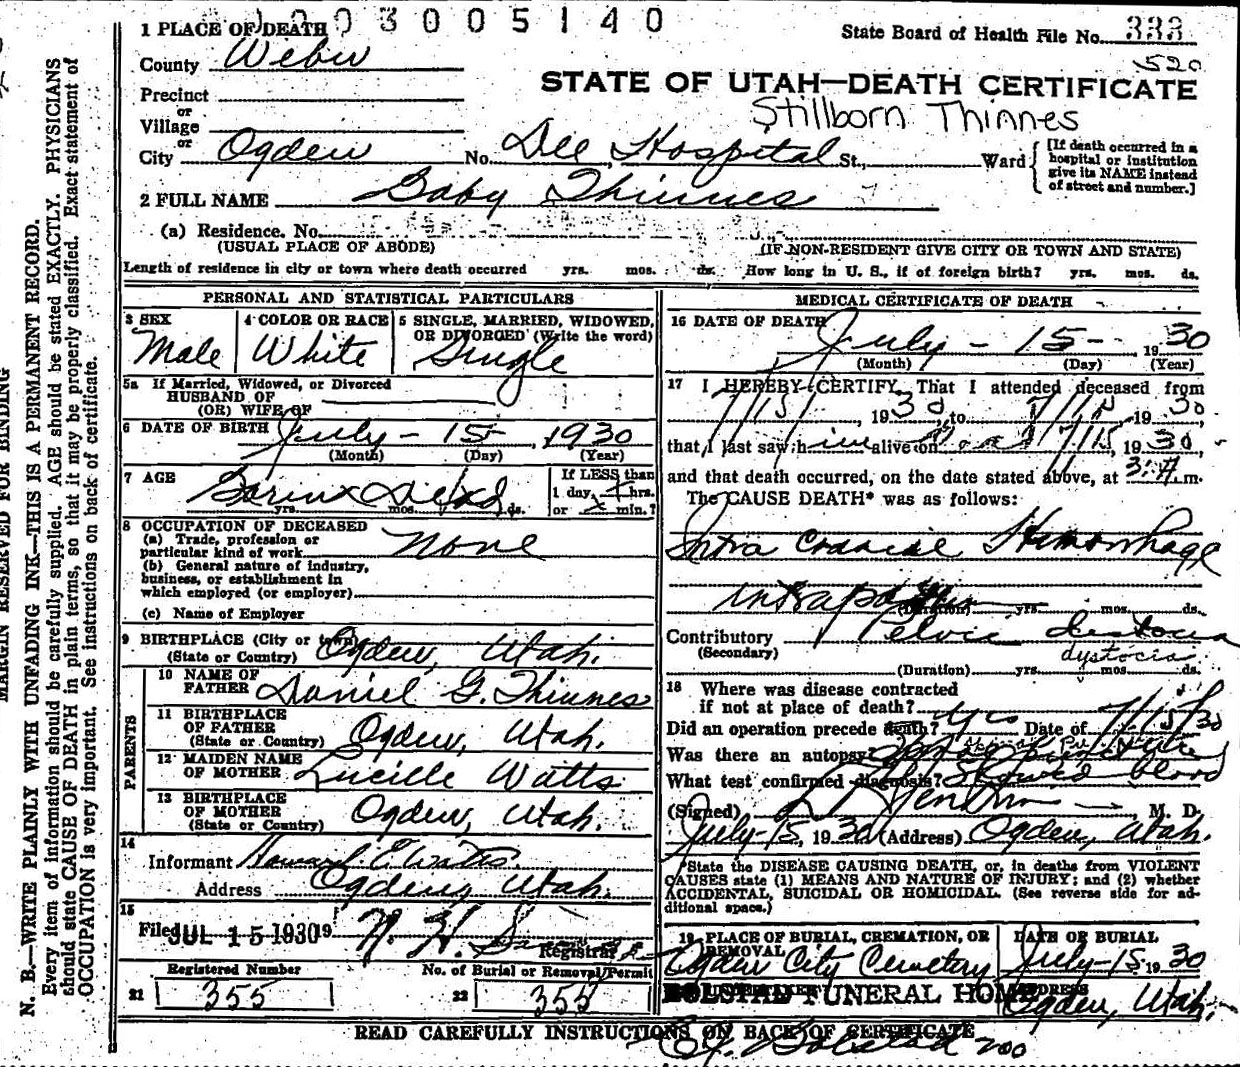 003005140
1 PLACE OF DEATH
State Board of Health File No. 333
520
County Weber
STATE OF UTAH—DEATH CERTIFICATE
Precinct
or
Village
Stillborn Thinnes
or
City Ogden No. Dee Hospital St., Ward
[If death occurred in a hospital or institution give its NAME instead of street and number.]
2 FULL NAME Baby Thinnes
(a) Residence. No.
(USUAL PLACE OF ABODE) (IF NON-RESIDENT GIVE CITY OR TOWN AND STATE)
Length of residence in city or town where death occurred yrs. mos. ds. How long in U. S., if of foreign birth? yrs. mos. ds.
PERSONAL AND STATISTICAL PARTICULARS
3 SEX
Male
4 COLOR OR RACE
White
5 SINGLE, MARRIED, WIDOWED,
OR DIVORCED (Write the word)
Single
5a If Married, Widowed, or Divorced
HUSBAND OF
(OR) WIFE OF
6 DATE OF BIRTH July - 15 - , 1930
(Month) (Day) (Year)
7 AGE
yrs. mos. ds.
If LESS than
1 day, hrs.
or min.?
8 OCCUPATION OF DECEASED
(a) Trade, profession or
particular kind of work None
(b) General nature of industry,
business, or establishment in
which employed (or employer)
(c) Name of Employer
9 BIRTHPLACE (City or town) Ogden, Utah.
(State or Country)
PARENTS
10 NAME OF
FATHER Daniel G. Thinnes
11 BIRTHPLACE
OF FATHER Ogden, Utah.
(State or Country)
12 MAIDEN NAME
OF MOTHER Lucille Watts
13 BIRTHPLACE
OF MOTHER Ogden, Utah.
(State or Country)
14
Informant Howard E. Watts.
Address Ogden, Utah.
15
Filed JUL 15 1930 19 N. H.
Registrar
Registered Number
21 355
No. of Burial or Removal Permit
22 355
MEDICAL CERTIFICATE OF DEATH
16 DATE OF DEATH July - 15 - 1930
(Month) (Day) (Year)
17 I HEREBY CERTIFY, That I attended deceased from
7/15/, 1930, to 7/15, 1930,
that I last saw him alive on 7/15, 1930,
and that death occurred, on the date stated above, at 3: A. m.
The CAUSE DEATH* was as follows:
Intra Cranial Hemorrhage
(Duration) yrs. mos. ds.
Contributory Pelvic dystocia
(Secondary) dystocia
(Duration) yrs. mos. ds.
18 Where was disease contracted
if not at place of death?
Did an operation precede death? yes Date of 7/15/30
Was there an autopsy?
What test confirmed diagnosis? Showed blood
(Signed) M. D.
July-15, 1930 (Address) Ogden, Utah.
*State the DISEASE CAUSING DEATH, or, in deaths from VIOLENT
CAUSES state (1) MEANS AND NATURE OF INJURY; and (2) whether
ACCIDENTAL, SUICIDAL OR HOMICIDAL. (See reverse side for ad-
ditional space.)
19 PLACE OF BURIAL, CREMATION, OR
REMOVAL
Ogden City Cemetery
DATE OF BURIAL
July-15 1930
BOLSTAD FUNERAL HOME
ADDRESS
Ogden, Utah.
READ CAREFULLY INSTRUCTIONS ON BACK OF CERTIFICATE
Bolstad 200
MARGIN RESERVED FOR BINDING
N. B.—WRITE PLAINLY WITH UNFADING INK—THIS IS A PERMANENT RECORD.
Every item of information should be carefully supplied. AGE should be stated EXACTLY. PHYSICIANS
should state CAUSE OF DEATH in plain terms, so that it may be properly classified. Exact statement of
OCCUPATION is very important. See instructions on back of certificate.